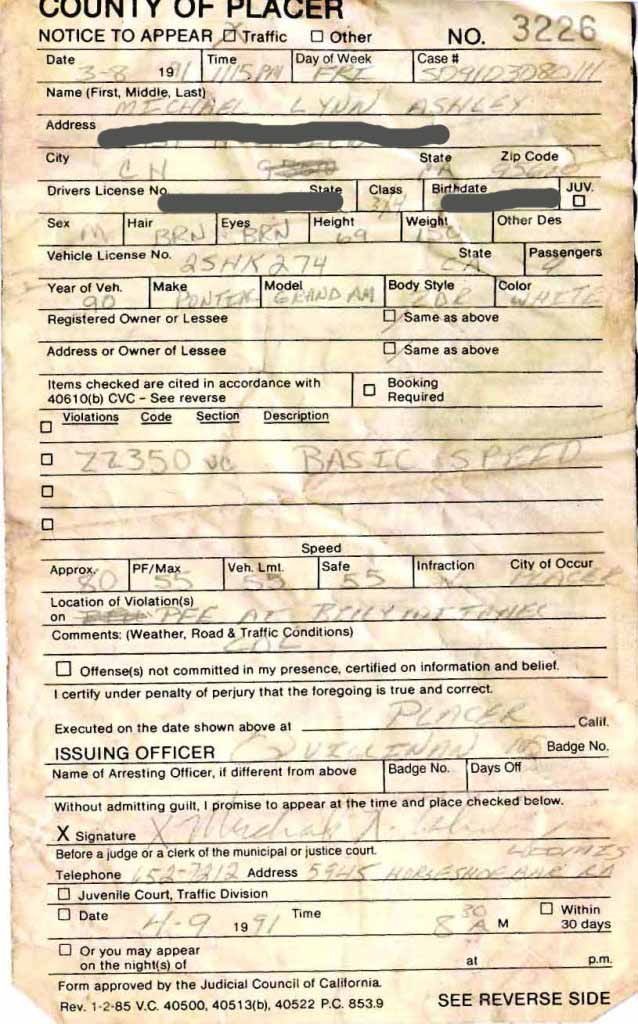 COUNTY OF PLACER
NOTICE TO APPEAR ☐ Traffic ☐ Other NO. 3226
Date Time Day of Week Case #
3-8 1991 1115 PM FRI
Name (First, Middle, Last)
MICHAEL LYNN ASHLEY
Address
City State Zip Code
CH CA
Drivers License No. State Class Birthdate JUV. ☐
Sex Hair Eyes Height Weight Other Des
M BRN BRN 69 150
Vehicle License No. State Passengers
2SHK274 CA
Year of Veh. Make Model Body Style Color
90 PONTIAC GRAND AM 2DR WHITE
Registered Owner or Lessee ☐ Same as above
Address or Owner of Lessee ☐ Same as above
Items checked are cited in accordance with
40610(b) CVC – See reverse
☐ Booking Required
☐ Violations Code Section Description
☐ 22350 VC BASIC SPEED
☐
☐
Speed
Approx. PF/Max Veh. Lmt. Safe Infraction City of Occur
80 55 55 55 PLACER
Location of Violation(s)
on PFE AT
Comments: (Weather, Road & Traffic Conditions)
☐ Offense(s) not committed in my presence, certified on information and belief.
I certify under penalty of perjury that the foregoing is true and correct.
Executed on the date shown above at PLACER Calif.
ISSUING OFFICER Badge No.
Name of Arresting Officer, if different from above Badge No. Days Off
Without admitting guilt, I promise to appear at the time and place checked below.
X Signature X
Before a judge or a clerk of the municipal or justice court.
LOOMIS
Telephone 652-7212 Address 5945 HORSESHOE BAR RD
☐ Juvenile Court, Traffic Division
☐ Date 4-9 1991 Time 8 30 A M ☐ Within 30 days
☐ Or you may appear
on the night(s) of at p.m.
Form approved by the Judicial Council of California.
Rev. 1-2-85 V.C. 40500, 40513(b), 40522 P.C. 853.9 SEE REVERSE SIDE